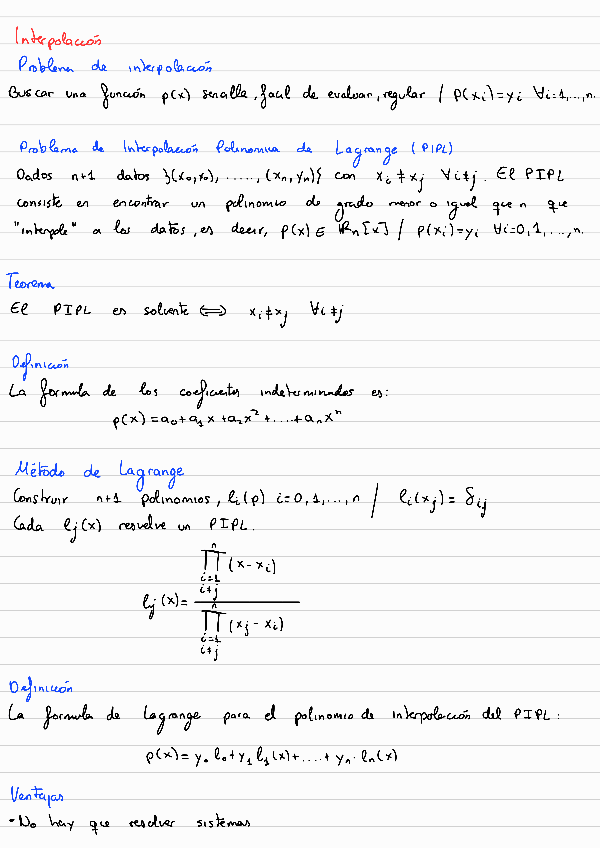 Interpolación
Problema de interpolación
Buscar una función p(x) sencilla, facil de evaluar, regular / p(xᵢ)=yᵢ ∀i=1,...,n.
Problema de Interpolación Polinomica de Lagrange (PIPL)
Dados n+1 datos {(x₀,y₀), ....., (xₙ,yₙ)} con xᵢ≠xⱼ ∀i≠j. El PIPL
consiste en encontrar un polinomio de grado menor o igual que n que
"interpole" a los datos, es decir, p(x)∈ ℝₙ[x] / p(xᵢ)=yᵢ ∀i=0,1,...,n.
Teorema
El PIPL es solvente ⟺ xᵢ≠xⱼ ∀i≠j
Definición
La formula de los coeficientes indeterminados es:
p(x)=a₀+a₁x+a₂x²+....+aₙxⁿ
Método de Lagrange
Construir n+1 polinomios, lᵢ(p) i=0,1,...,n / lᵢ(xⱼ)= δᵢⱼ
Cada lⱼ(x) resuelve un PIPL.
n
∏ (x-xᵢ)
i=1
i≠j
lⱼ(x)=
n
∏ (xⱼ-xᵢ)
i=1
i≠j
Definición
La formula de Lagrange para el polinomio de interpolación del PIPL:
p(x)=y₀l₀+y₁l₁(x)+....+yₙ·lₙ(x)
Ventajas
·No hay que resolver sistemas